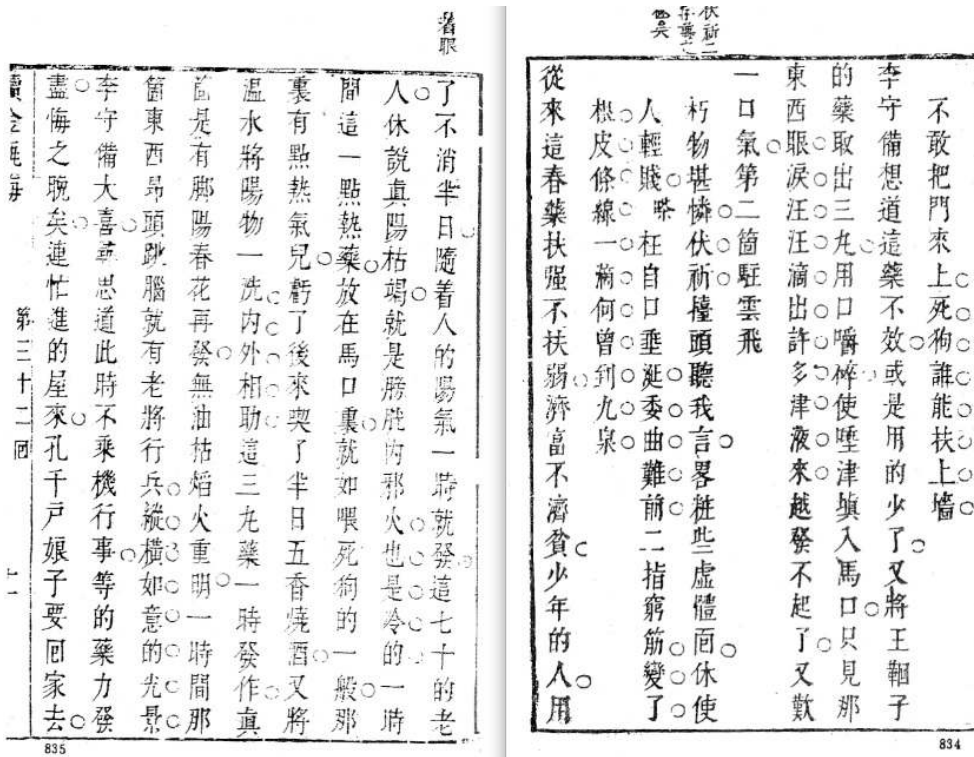 伏祈二
不敢把門來上死狗誰能扶上墻
李守備想道這藥不效或是用的少了又將王鞓子
的藥取出三丸用口嚼碎使唾津填入馬口只見那
東西眼淚汪汪滴出許多津液來越發不起了又歎
一口氣第二箇駐雲飛
朽物堪憐伏祈擡頭聽我言畧粧些虛體面休使
人輕賤嗏枉自口垂涎委曲難前二指窮筋變了
根皮條線一滴何曾到九泉
從來這春藥扶强不扶弱濟富不濟貧少年的人用
834
着眼
了不消半日隨着人的陽氣一時就發這七十的老
人休說真陽枯竭就是膀胱內邪火也是冷的一時
間這一點熱藥放在馬口裏就如喂死狗的一般那
裏有點熱氣兒虧了後來喫了半日五香燒酒又將
溫水將陽物一洗內外相助這三丸藥一時發作真
箇是有脚陽春花再發無油枯熖火重明一時間那
箇東西昂頭跳腦就有老將行兵縱橫如意的光景
李守備大喜尋思道此時不乘機行事等的藥力發
盡悔之晚矣連忙進的屋來孔千戶娘子要回家去
續金瓶梅
第三十二回
835